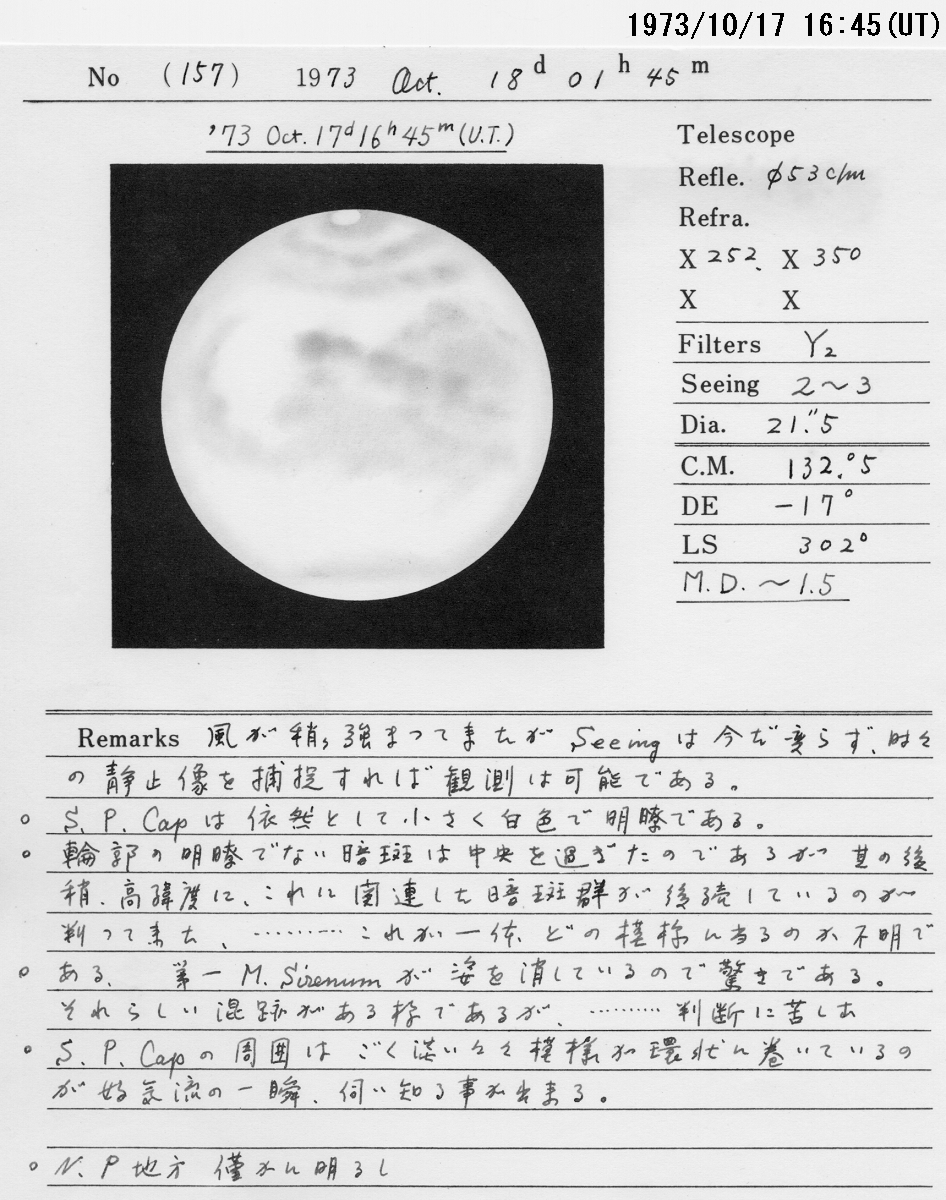 1973/10/17 16:45(UT)
No (157) 1973 Oct. 18d 01h 45m
'73 Oct. 17d 16h 45m (U.T.)
Telescope
Refle. φ53c/m
Refra.
X 252. X 350
X X
Filters Y2
Seeing 2～3
Dia. 21."5
C.M. 132.°5
DE -17°
LS 302°
M.D. ～1.5
Remarks 風が稍々強まって来たが Seeingは今だ変らず、時々
の静止像を捕捉すれば観測は可能である。
○ S.P.Capは依然として小さく白色で明瞭である。
○ 輪郭の明瞭でない暗斑は中央を過ぎたのであるが 其の後
稍、高緯度に、これに関連した暗斑群が後続しているのが
判って来た、………これが一体、どの模様に当るのか不明で
○ ある、 第一 M. Sirenumが姿を消しているので驚きである。
それらしい混跡がある様であるが、………判断に苦しむ
○ S.P.Capの周囲は ごく淡い 模様が環状に巻いているの
が好気流の一瞬、伺い知る事が出来る。
○ N.P地方 僅かに明るし